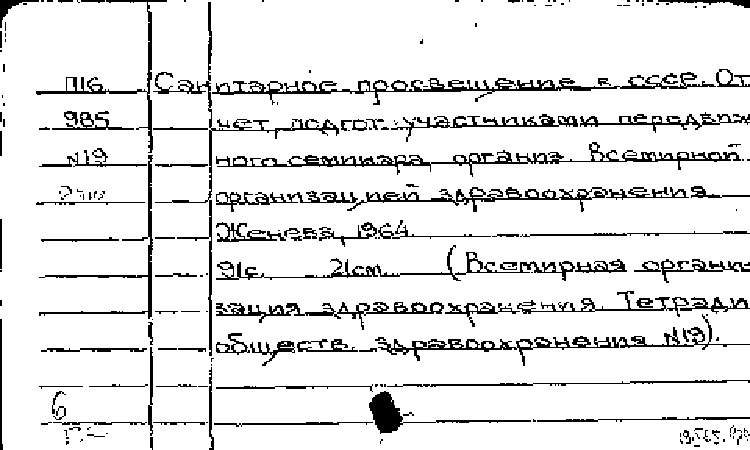 П16 Санитарное просвещение в СССР. От
985 чет, подгот. участниками передвиж
N19 ного семинара, органиэ. Всемирной
организацией здравоохранения.
Женева, 1964.
91с. 21см. (Всемирная органи
зация здравоохранения. Тетради
обществ. здравоохранения N19).
6